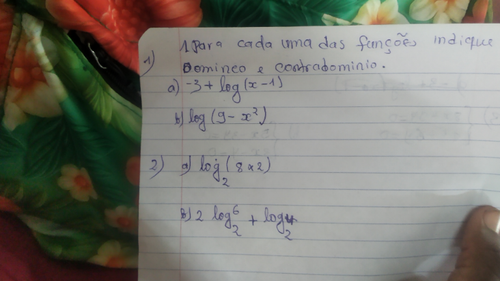 1) 1. Para cada uma das funções indique
Domineo e contradomínio.
a) -3 + log(x-1)
b) log(9-x²)
2) a) log₂(8x2)
b) 2 log₂⁶ + log₂⁴